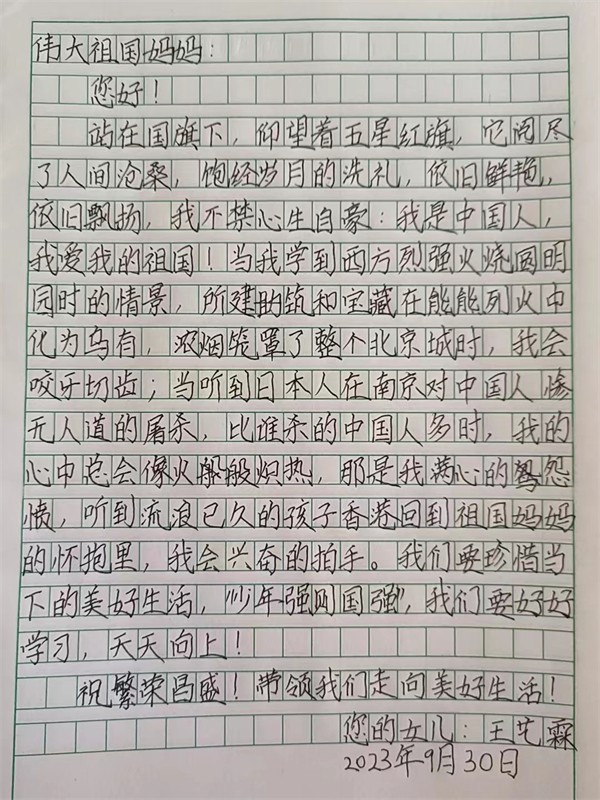 伟大祖国妈妈：
您好！
站在国旗下，仰望着五星红旗，它阅尽
了人间沧桑，饱经岁月的洗礼，依旧鲜艳，
依旧飘扬，我不禁心生自豪：我是中国人，
我爱我的祖国！当我学到西方烈强火烧圆明
园时的情景，所建筑和宝藏在能能烈火中
化为乌有，浓烟笼罩了整个北京城时，我会
咬牙切齿；当听到日本人在南京对中国人惨
无人道的屠杀，比谁杀的中国人多时，我的
心中总会像火般炽热，那是我满心的怨
愤，听到流浪已久的孩子香港回到祖国妈妈
的怀抱里，我会兴奋的拍手。我们要珍惜当
下的美好生活，“少年强则国强”，我们要好好
学习，天天向上！
祝繁荣昌盛！带领我们走向美好生活！
您的女儿：王艺霖
2023年9月30日